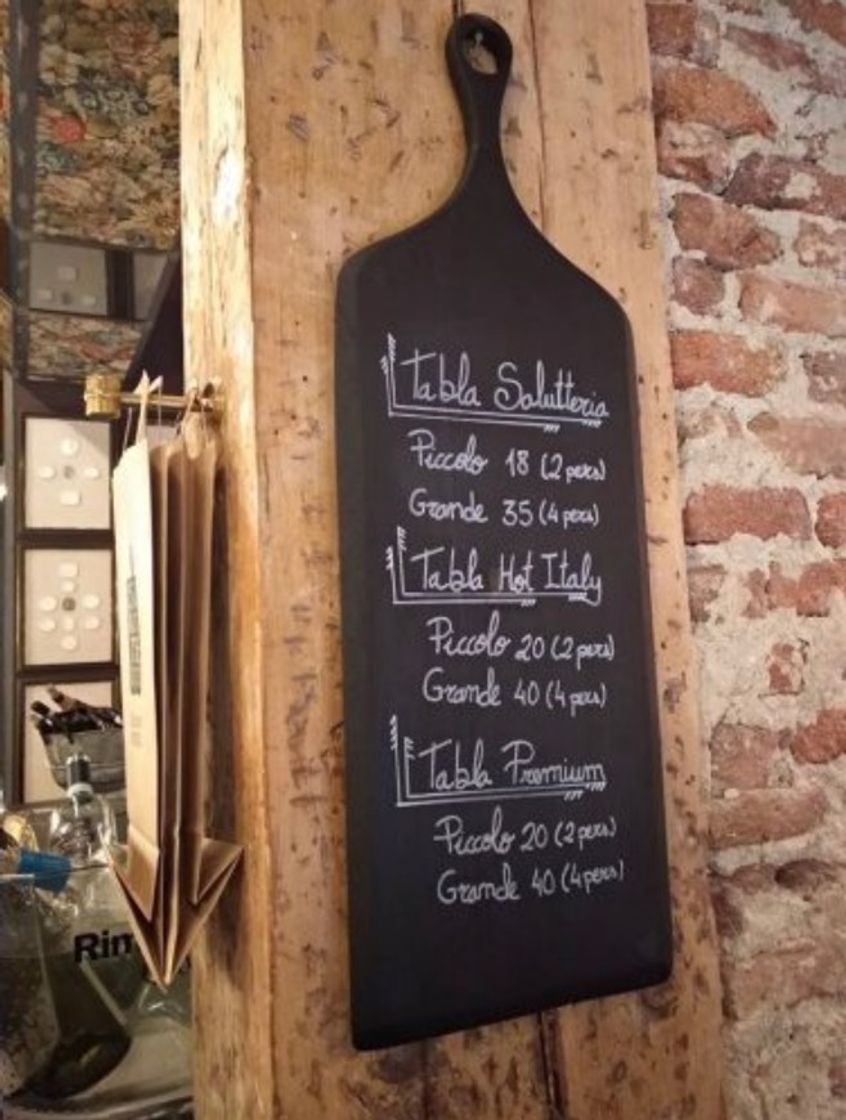 Tabla Salutteria
Piccolo 18 (2 pers)
Grande 35 (4 pers)
Tabla Hot Italy
Piccolo 20 (2 pers)
Grande 40 (4 pers)
Tabla Premium
Piccolo 20 (2 pers)
Grande 40 (4 pers)